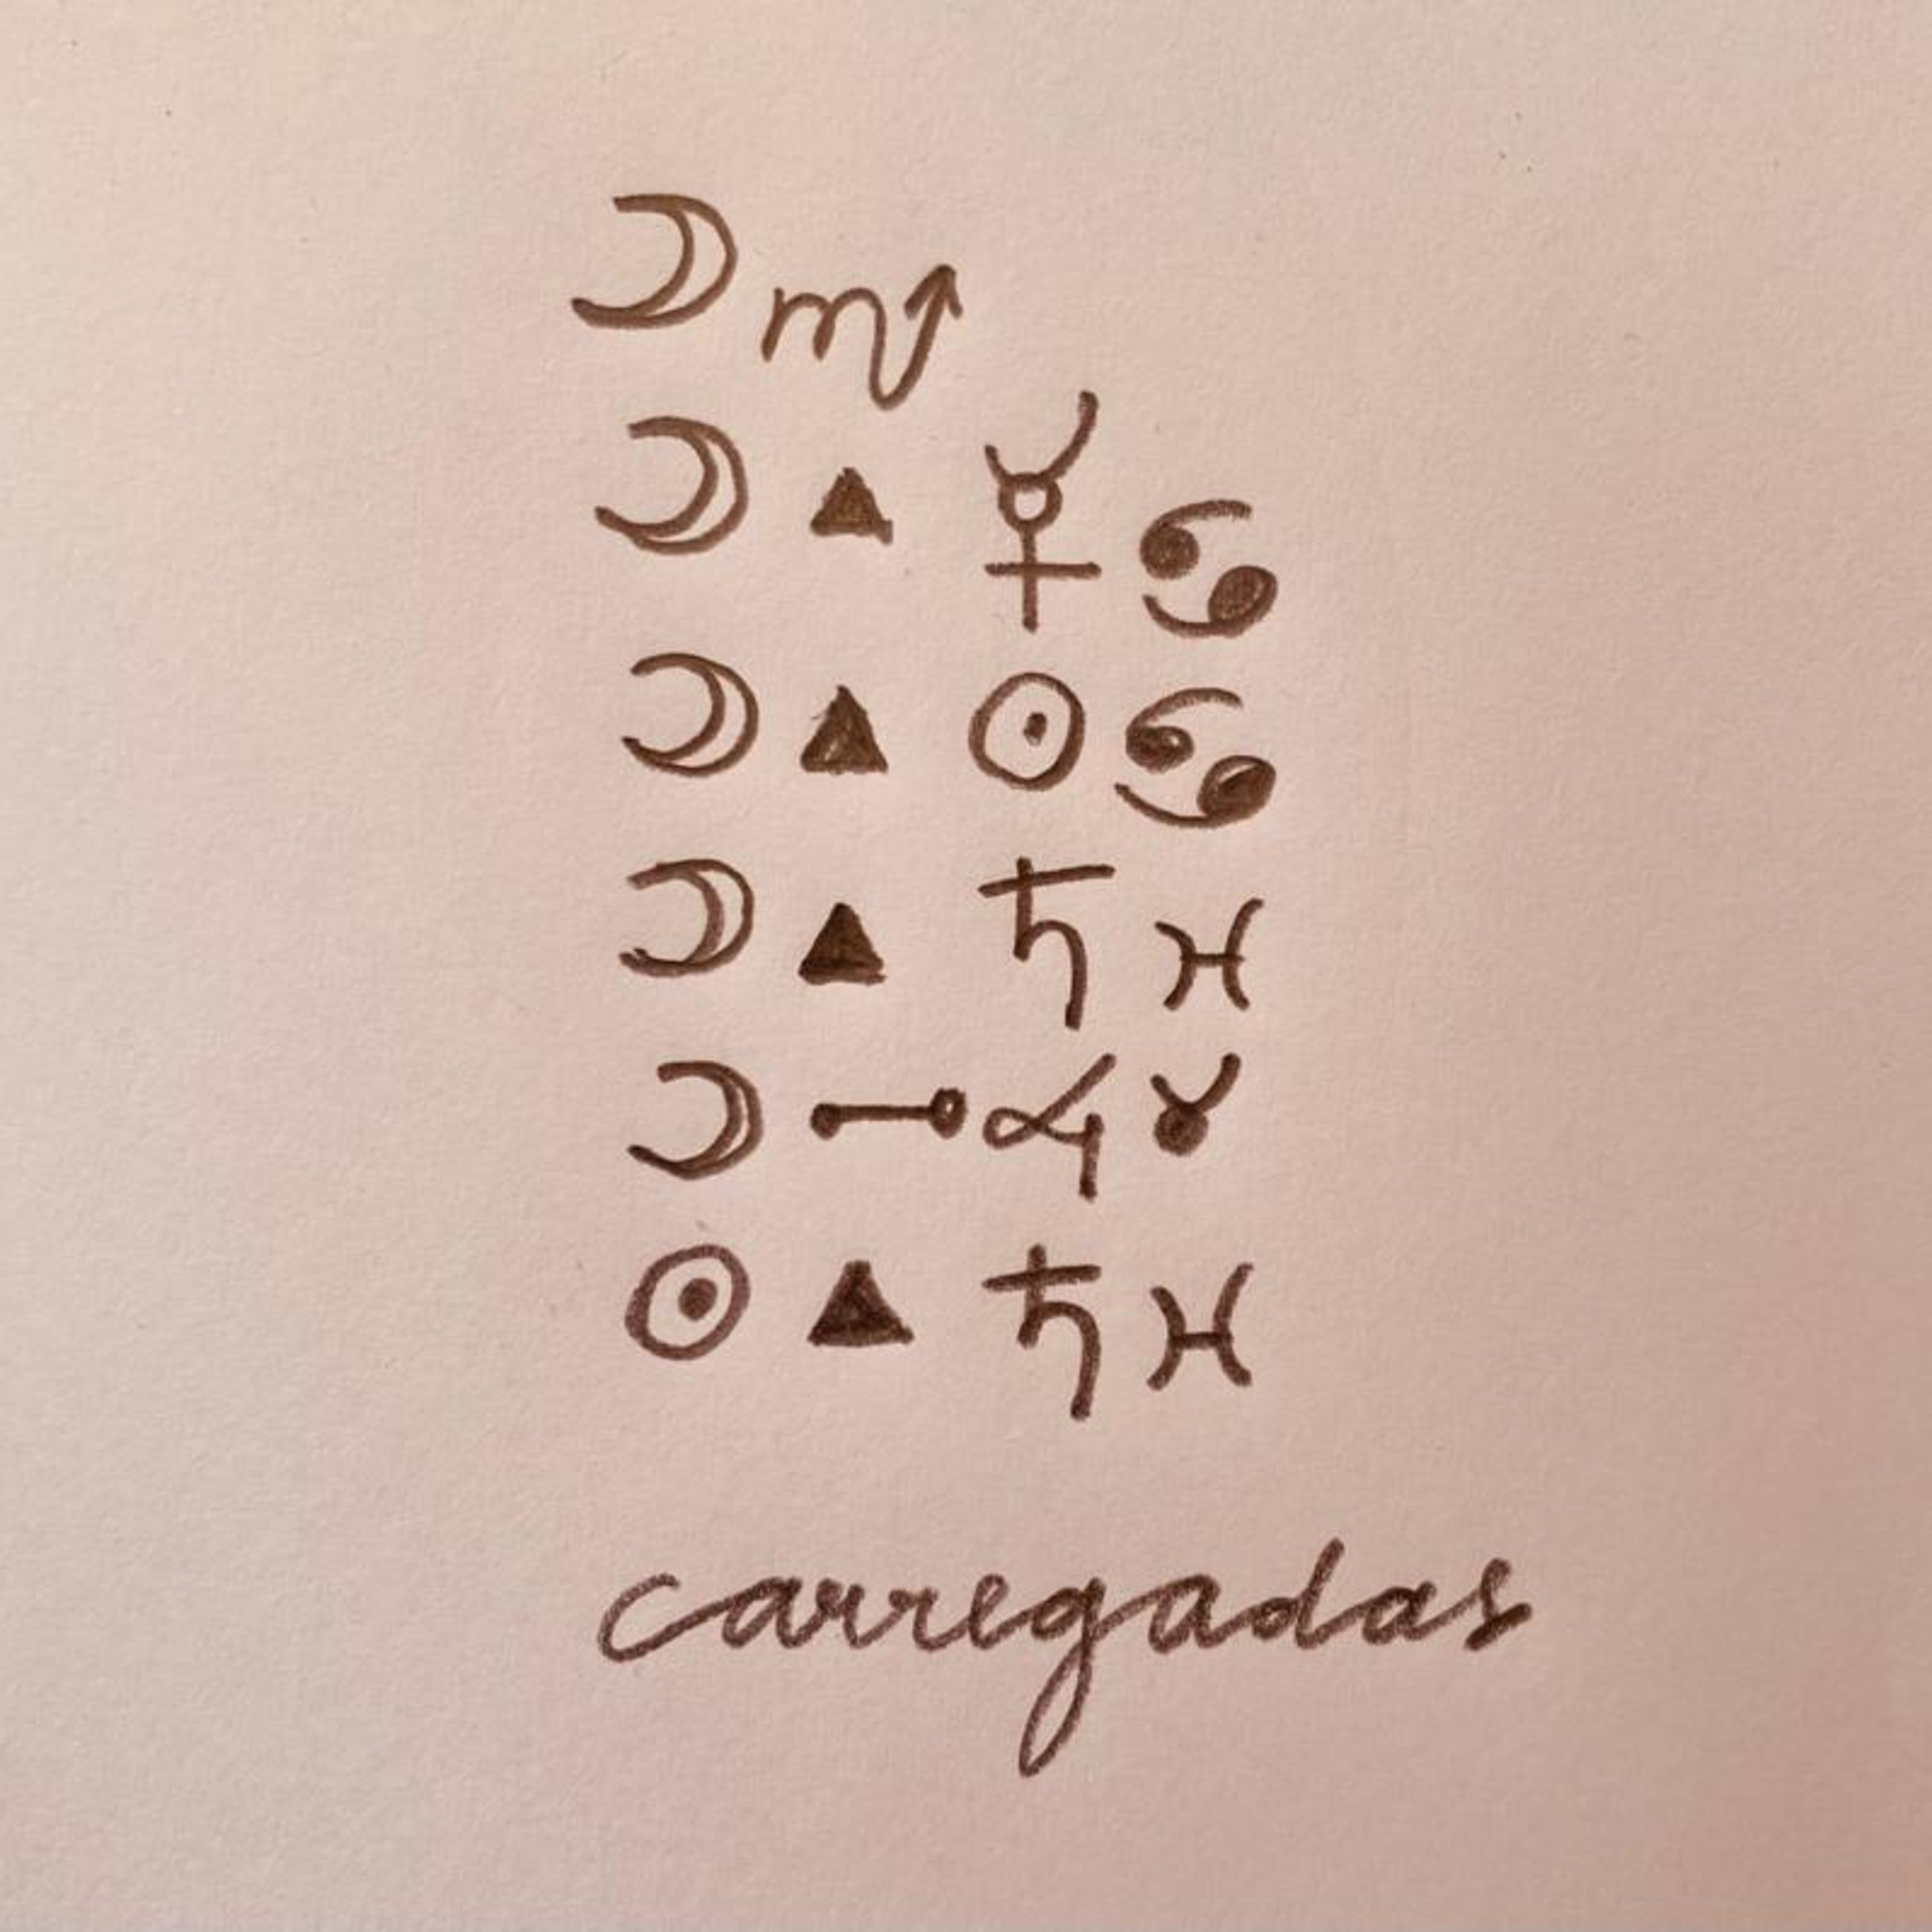 ☽ ♏
☽ ▲ ☿ ♋
☽ ▲ ☉ ♋
☽ ▲ ♄ ♓
☽ ☍ ♃ ♉
☉ ▲ ♄ ♓
carregadas